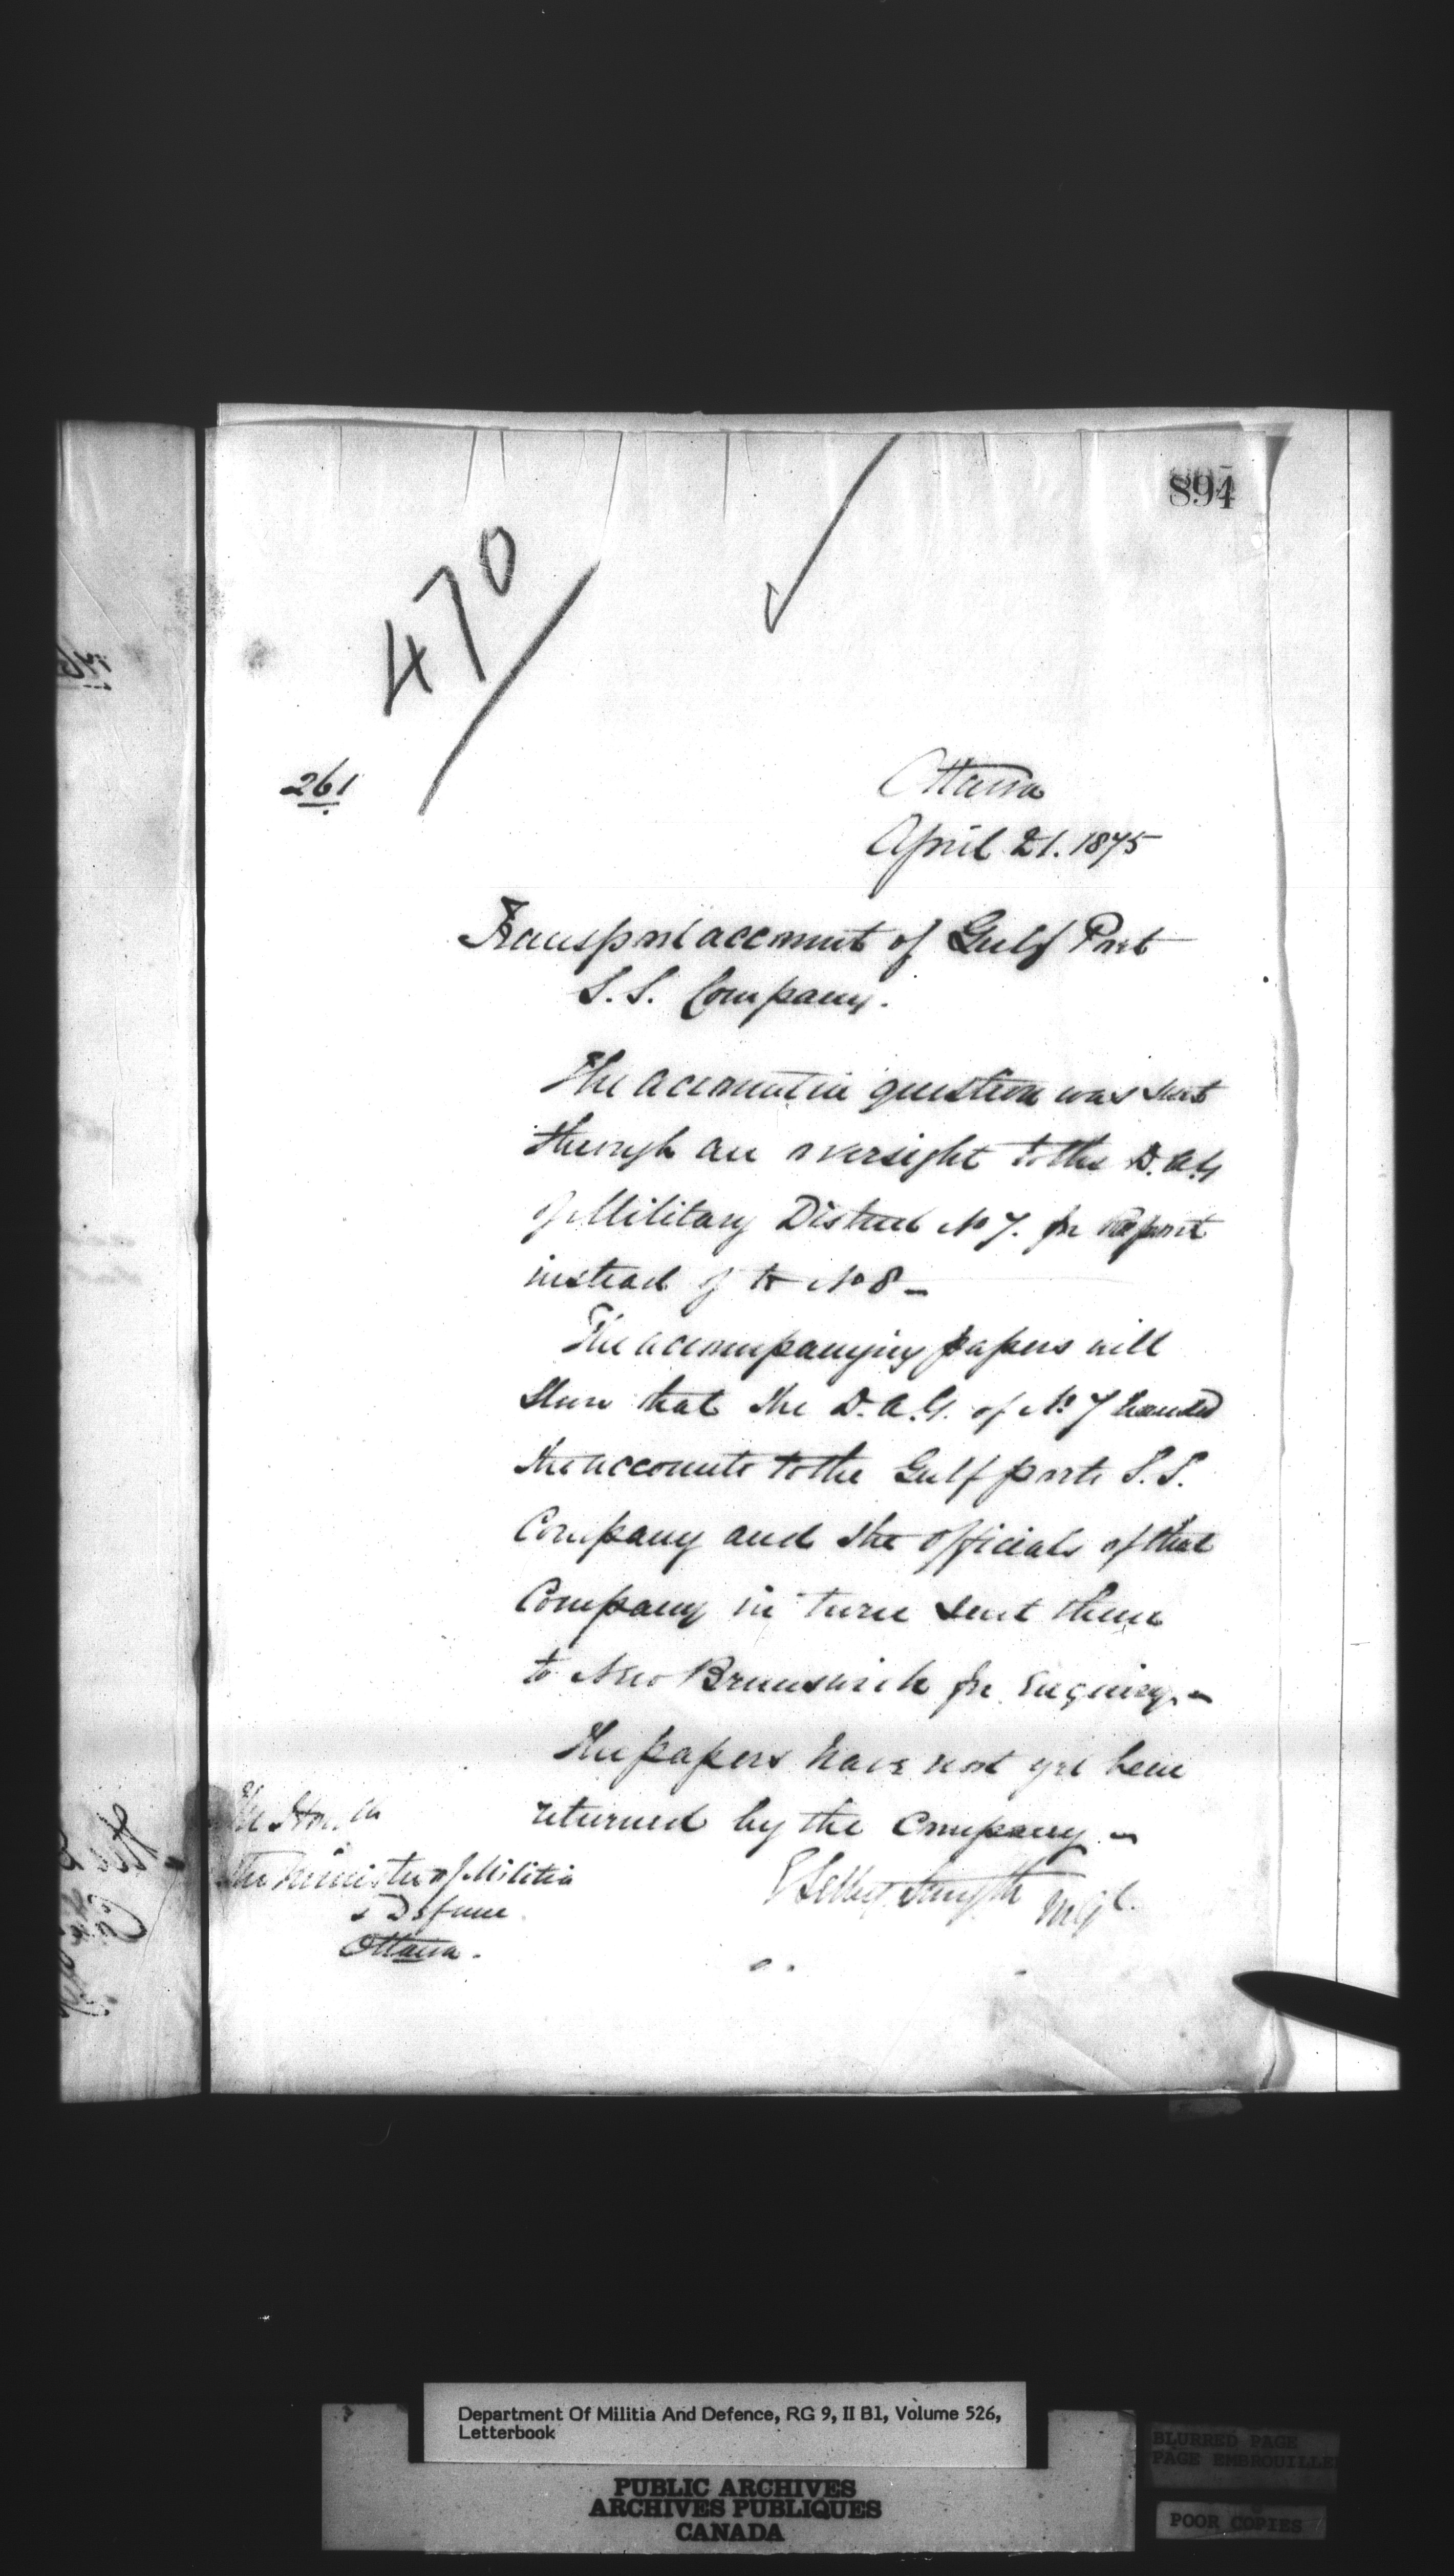 894
470
261
Ottawa
April 21. 1875
Transport account of Gulf Port
S.S. Company.
The account in question was sent
through an oversight to the D.A.G
of Military District No 7. for Report
instead of to No 8 –
The accompanying papers will
show that the D.A.G. of No 7 handed
the accounts to the Gulf ports S.S.
Company and the officials of that
Company in turn sent them
to New Brunswick for enquiry. –
The papers have not yet been
returned by the Company –
E Selby Smyth M Gl.
The Hon. the
The Minister of Militia
& Defence
Ottawa.
Department Of Militia And Defence, RG 9, II B1, Volume 526,
Letterbook
PUBLIC ARCHIVES
ARCHIVES PUBLIQUES
CANADA
BLURRED PAGE
PAGE EMBROUILLEE
POOR COPIES